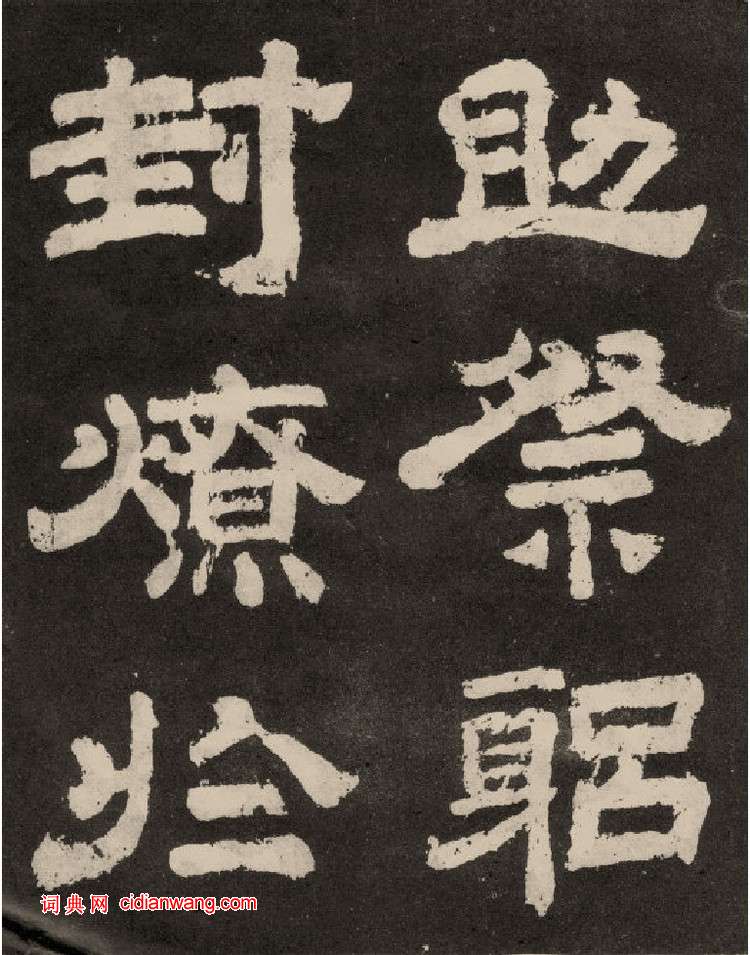 助祭躬
封燎於
词典网 cidianwang.com